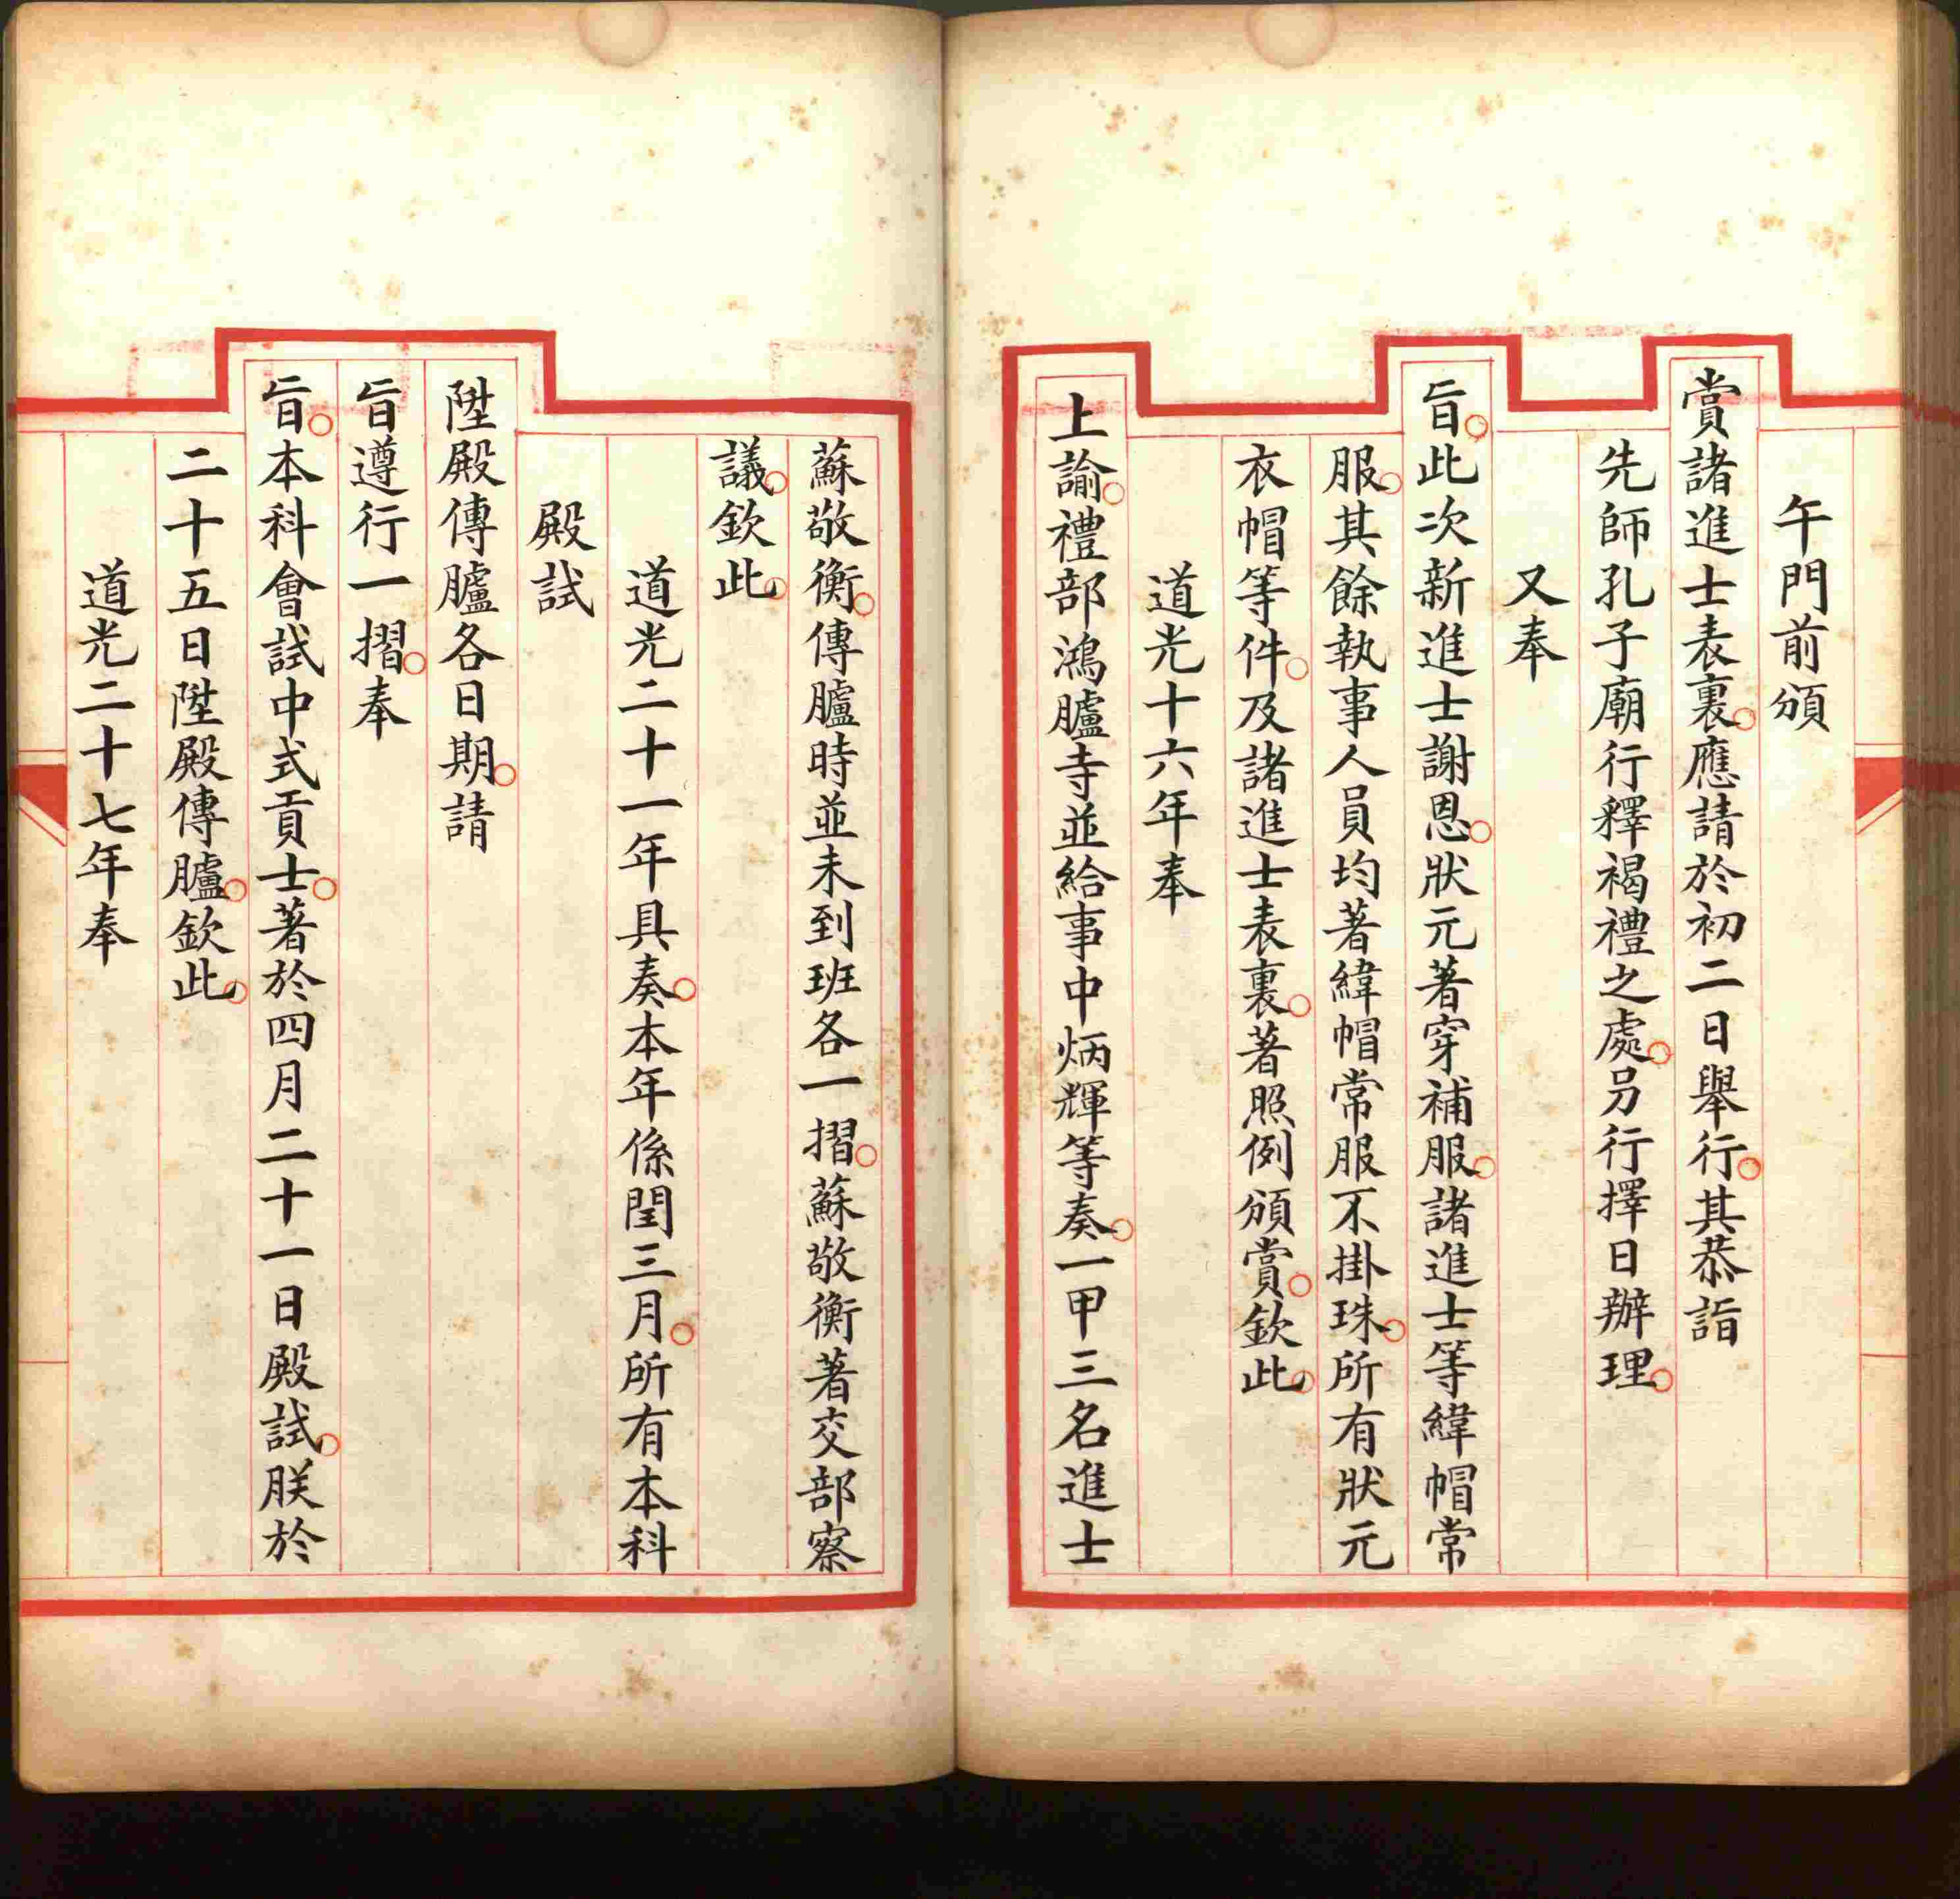 午門前頒
賞諸進士表裏應請於初二日舉行其恭詣
先師孔子廟行釋褐禮之處另行擇日辦理
又奉
旨此次新進士謝恩狀元著穿補服諸進士等緯帽常
服其餘執事人員均著緯帽常服不掛珠所有狀元
衣帽等件及諸進士表裏著照例頒賞欽此
道光十六年奉
上諭禮部鴻臚寺並給事中炳輝等奏一甲三名進士
蘇敬衡傳臚時並未到班各一摺蘇敬衡著交部察
議欽此
道光二十一年具奏本年係閏三月所有本科
殿試
陞殿傳臚各日期請
旨遵行一摺奉
旨本科會試中式貢士著於四月二十一日殿試朕於
二十五日陞殿傳臚欽此
道光二十七年奉